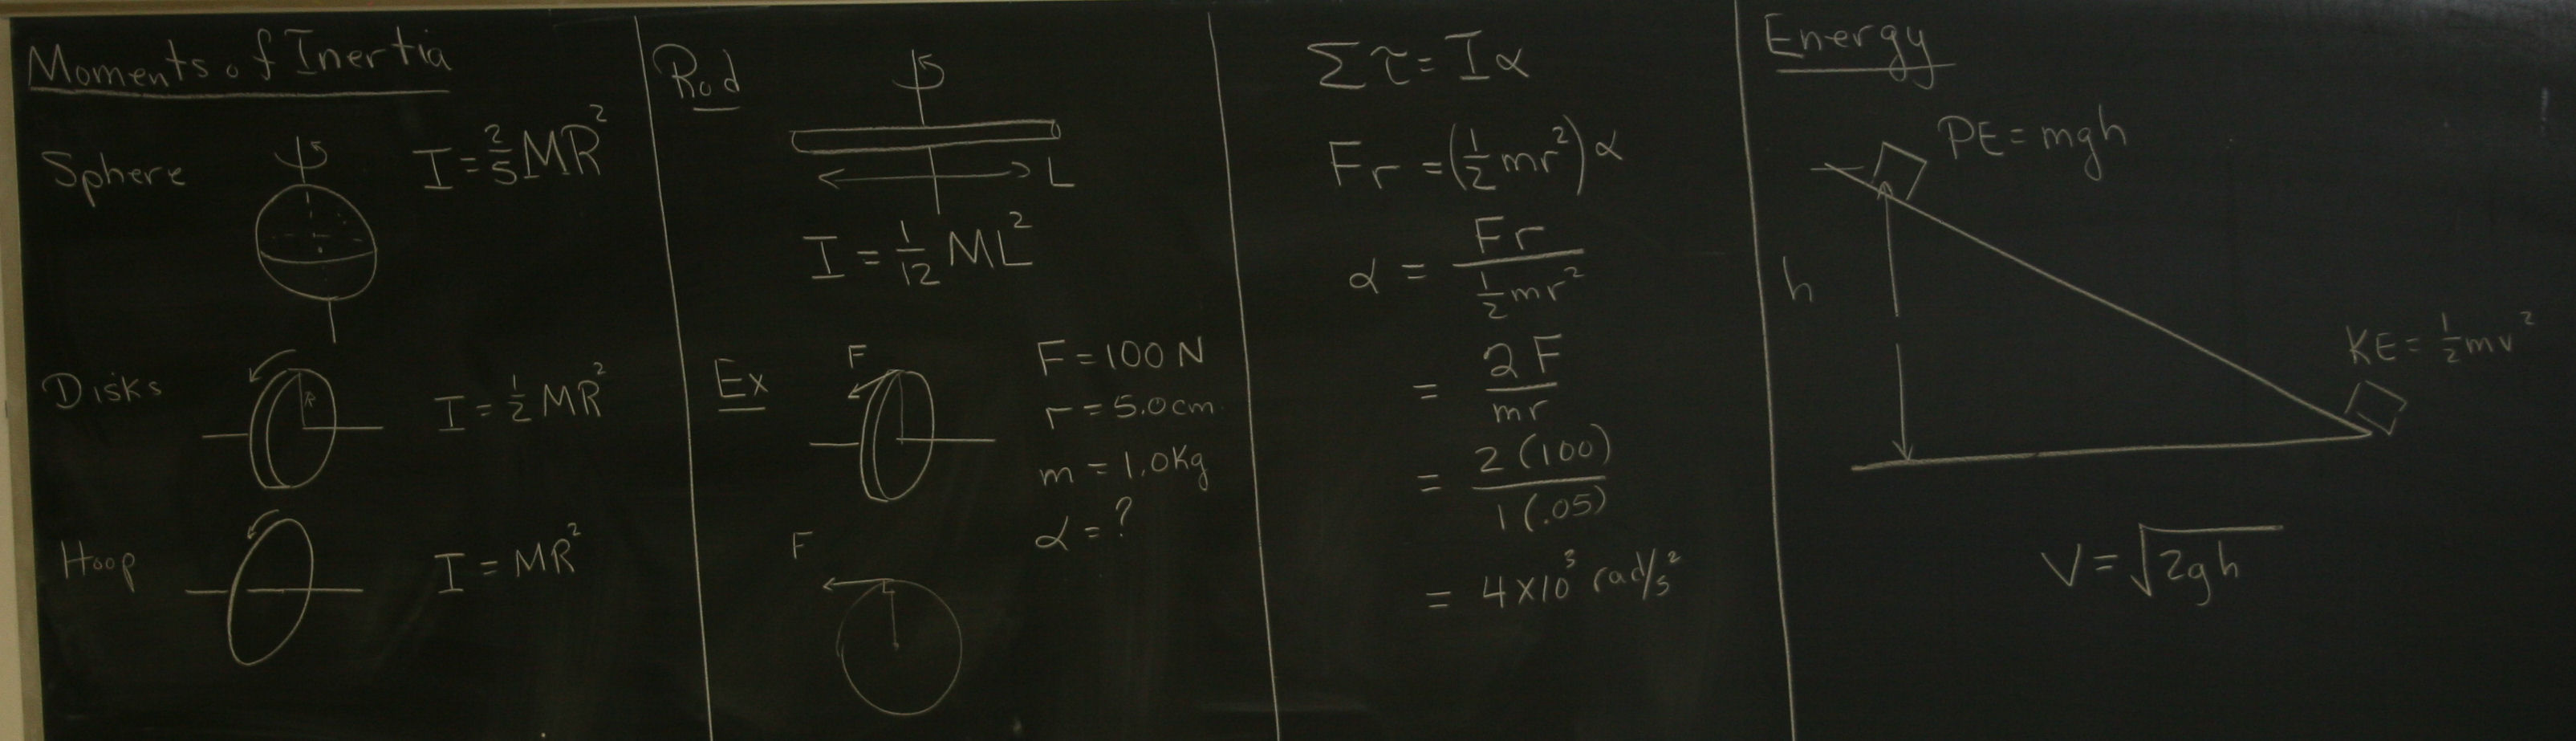 Moments of Inertia
Sphere I = 2/5 MR²
Disks R I = 1/2 MR²
Hoop I = MR²
Rod
L
I = 1/12 ML²
Ex F F = 100 N
r = 5.0cm
m = 1.0Kg
α = ?
F
Στ = Iα
Fr = (1/2 mr²)α
α = Fr / 1/2 mr²
= 2F / mr
= 2(100) / 1(.05)
= 4×10³ rad/s²
Energy
PE = mgh
h
KE = 1/2 mv²
V = √2gh